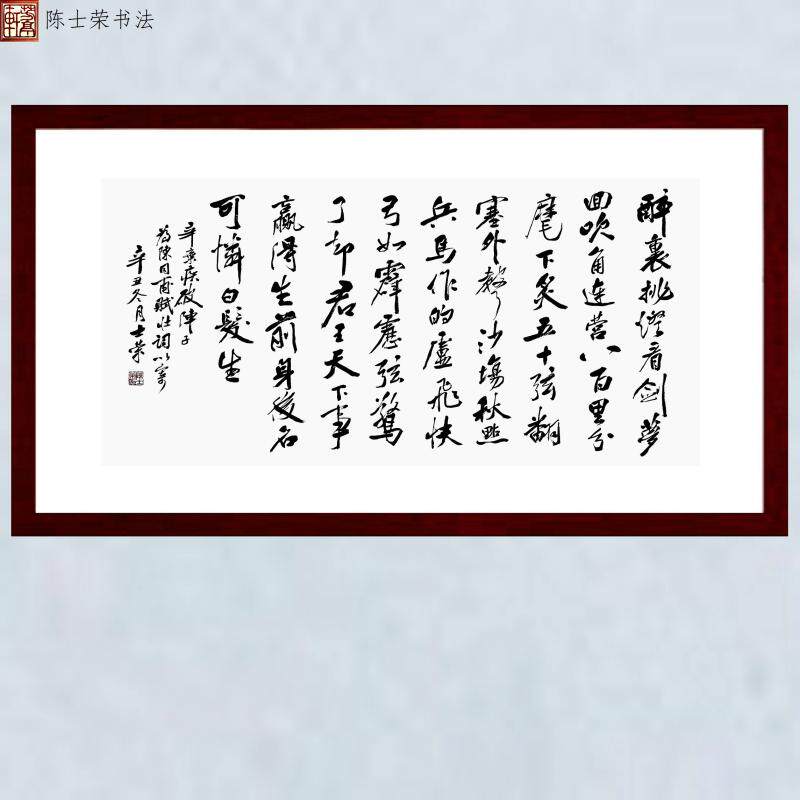 陈士荣书法
醉裏挑燈看劍夢
回吹角連营八百里分
麾下炙五十弦翻
塞外聲沙場秋點
兵馬作的盧飛快
弓如霹靂弦驚
了却君王天下事
贏得生前身後名
可憐白髮生
辛棄疾破陣子
為陳同甫賦壮詞以寄
辛丑冬月士荣